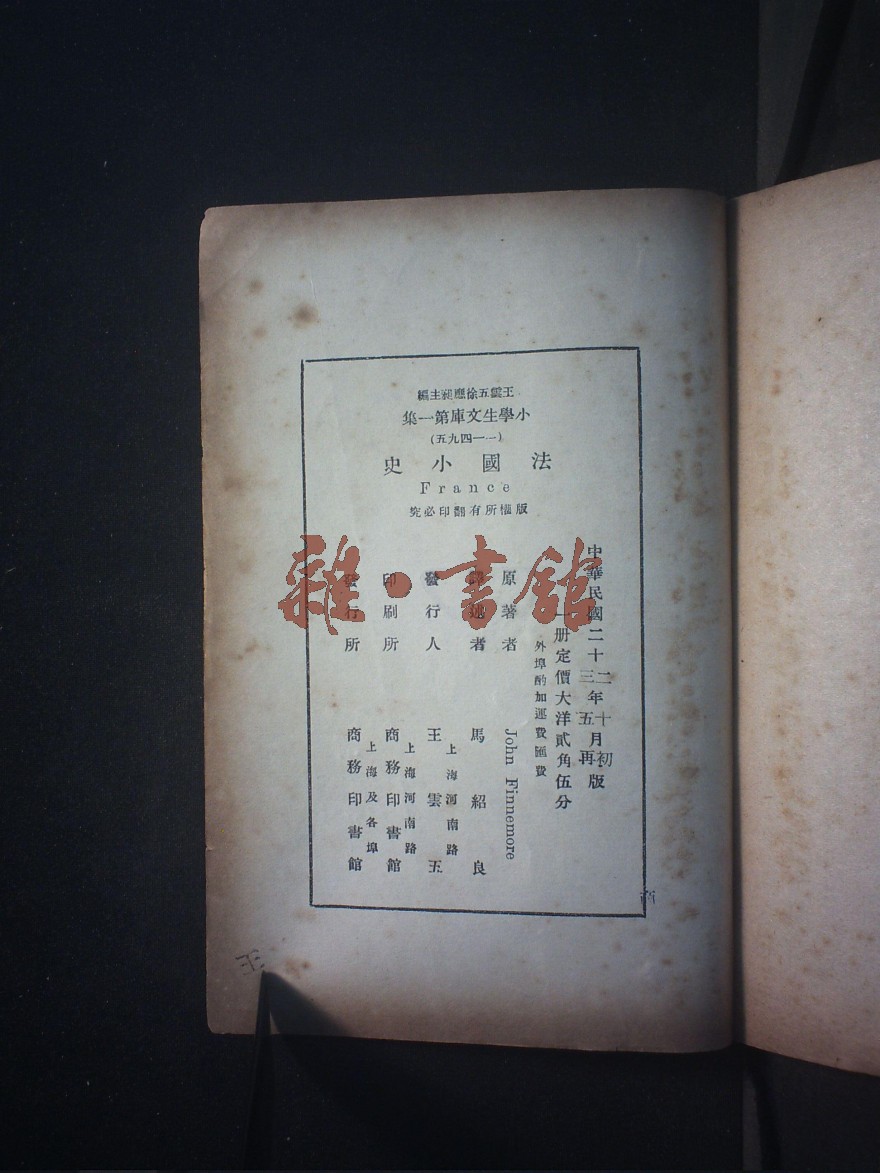 王雲五徐應昶主編
小學生文庫第一集
(一一四九五)
法國小史
France
版權所有翻印必究
中華民國二十二年十月初版
三 五 再
一册定價大洋貳角伍分
外埠酌加運費匯費
原著者 John Finnemore
譯述者 馬紹良
發行人 王雲五
上海河南路
印刷所 商務印書館
上海河南路
發行所 商務印書館
上海及各埠
雜·書館